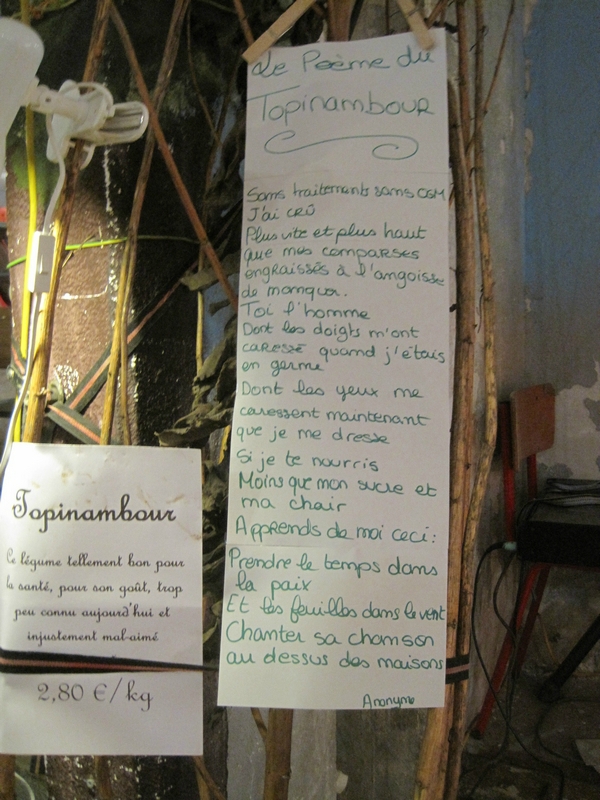 Le Poème du
Topinambour
Sans traitements sans OGM
J'ai crû
Plus vite et plus haut
que mes comparses
engraissés à l'angoisse
de manquer.
Toi l'homme
Dont les doigts m'ont
caressé quand j'étais
en germe
Dont les yeux me
caressent maintenant
que je me dresse
Si je te nourris
Moins que mon sucre et
ma chair
Apprends de moi ceci:
Prendre le temps dans
la paix
Et les feuilles dans le vent
Chanter sa chanson
au dessus des maisons
Anonyme
Topinambour
Ce légume tellement bon pour
la santé, pour son goût, trop
peu connu aujourd'hui et
injustement mal-aimé
2,80 €/kg